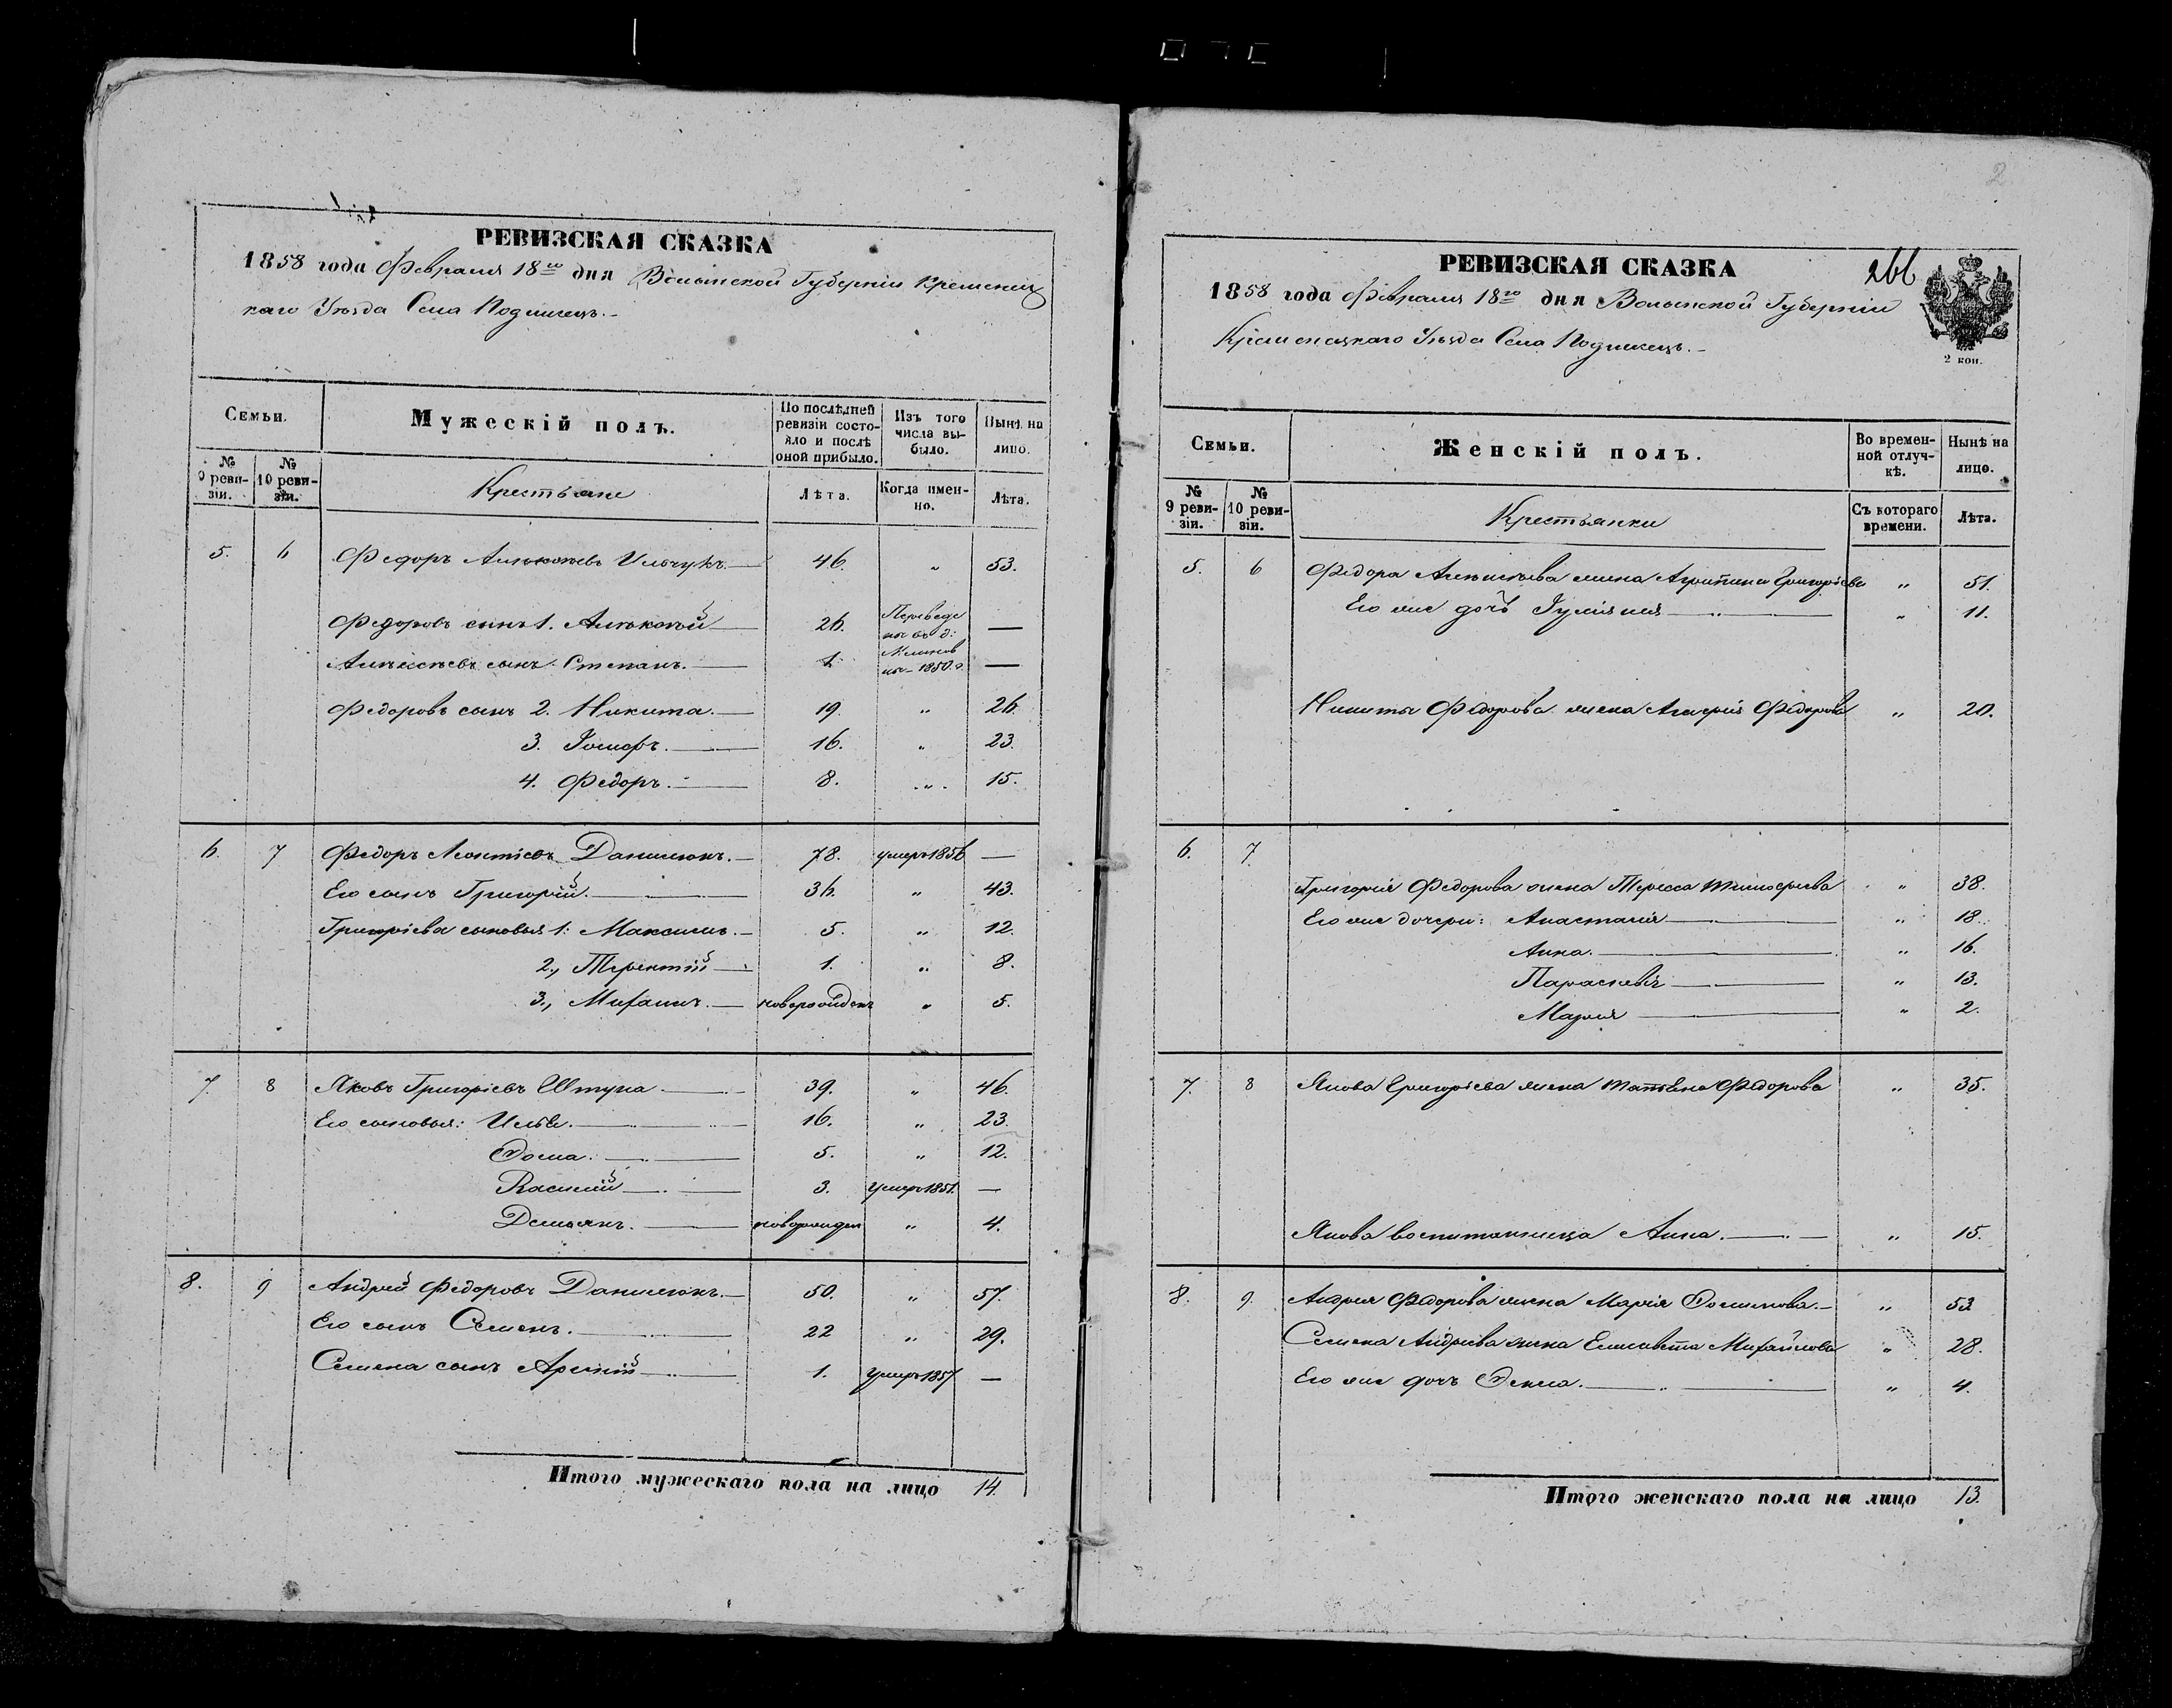 РЕВИЗСКАЯ СКАЗКА
1858 года Февраля 18го дня Волынской Губерніи Кременец
каго Уѣзда Села
Семьи.
Мужескій полъ.
По послѣдней ревизіи состояло и послѣ оной прибыло.
Изъ того числа выбыло.
Нынѣ на лицо.
№ 9 ревизіи.
№ 10 ревизіи.
Крестьяне
Лѣта.
Когда именно.
Лѣта.
5. 6 Федоръ Алексѣевъ Ильчукъ. 46. " 53.
Федоровъ сынъ 1. Алексѣй 26. Переведе
ны въ д: —
Алексѣевъ сынъ Степанъ. 1. 1850. г. —
Федоровъ сынъ 2. Никита. 19. " 26.
3. Іосифъ. 16. " 23.
4. Федоръ. 8. " 15.
6. 7 Федоръ Леонтіевъ Данилюкъ. 78. умеръ 1856 —
Его сынъ Григорій. 36. " 43.
Григоріева сыновья 1: Максимъ. 5. " 12.
2., Терентій 1. " 8.
3., Михаилъ. новорожденъ " 5.
7. 8 Яковъ Григоріевъ Штука 39. " 46.
Его сыновья: Илья. 16. " 23.
Фома. 5. " 12.
Василій 3. умеръ 1851. —
Демьянъ. новорожден " 4.
8. 9 Андрей Федоровъ Данилюкъ. 50. " 57.
Его сынъ Семенъ. 22 " 29.
Семена сынъ Арсеній 1. умеръ 1857 —
Итого мужескаго пола на лицо 14.
2
266
РЕВИЗСКАЯ СКАЗКА
1858 года Февраля 18го дня Волынской Губерніи
Кременецкаго Уѣзда Села
2 коп.
Семьи.
Женскій полъ.
Во временной отлучкѣ.
Нынѣ на лицо.
№ 9 ревизіи.
№ 10 ревизіи.
Крестьянки
Съ котораго времени.
Лѣта.
5. 6 Федора Алексѣева жена Агрипина Григоріева " 51.
Его же дочь Іуліянія " 11.
Никиты Федорова жена Федорова " 20.
6. 7.
Григорія Федорова жена Тереса Тимофеева " 38.
Его же дочери: Анастасія " 18.
Анна. " 16.
Параскевія " 13.
Марія " 2.
7. 8 Якова Григоріева жена Татіяна Федорова " 35.
Якова воспитанница Анна. " 15.
8. 9. Андрея Федорова жена Марія " 53
Семена Андреева жена Елисавета Михайлова " 28.
Его же дочь " 4.
Итого женскаго пола на лицо 13.